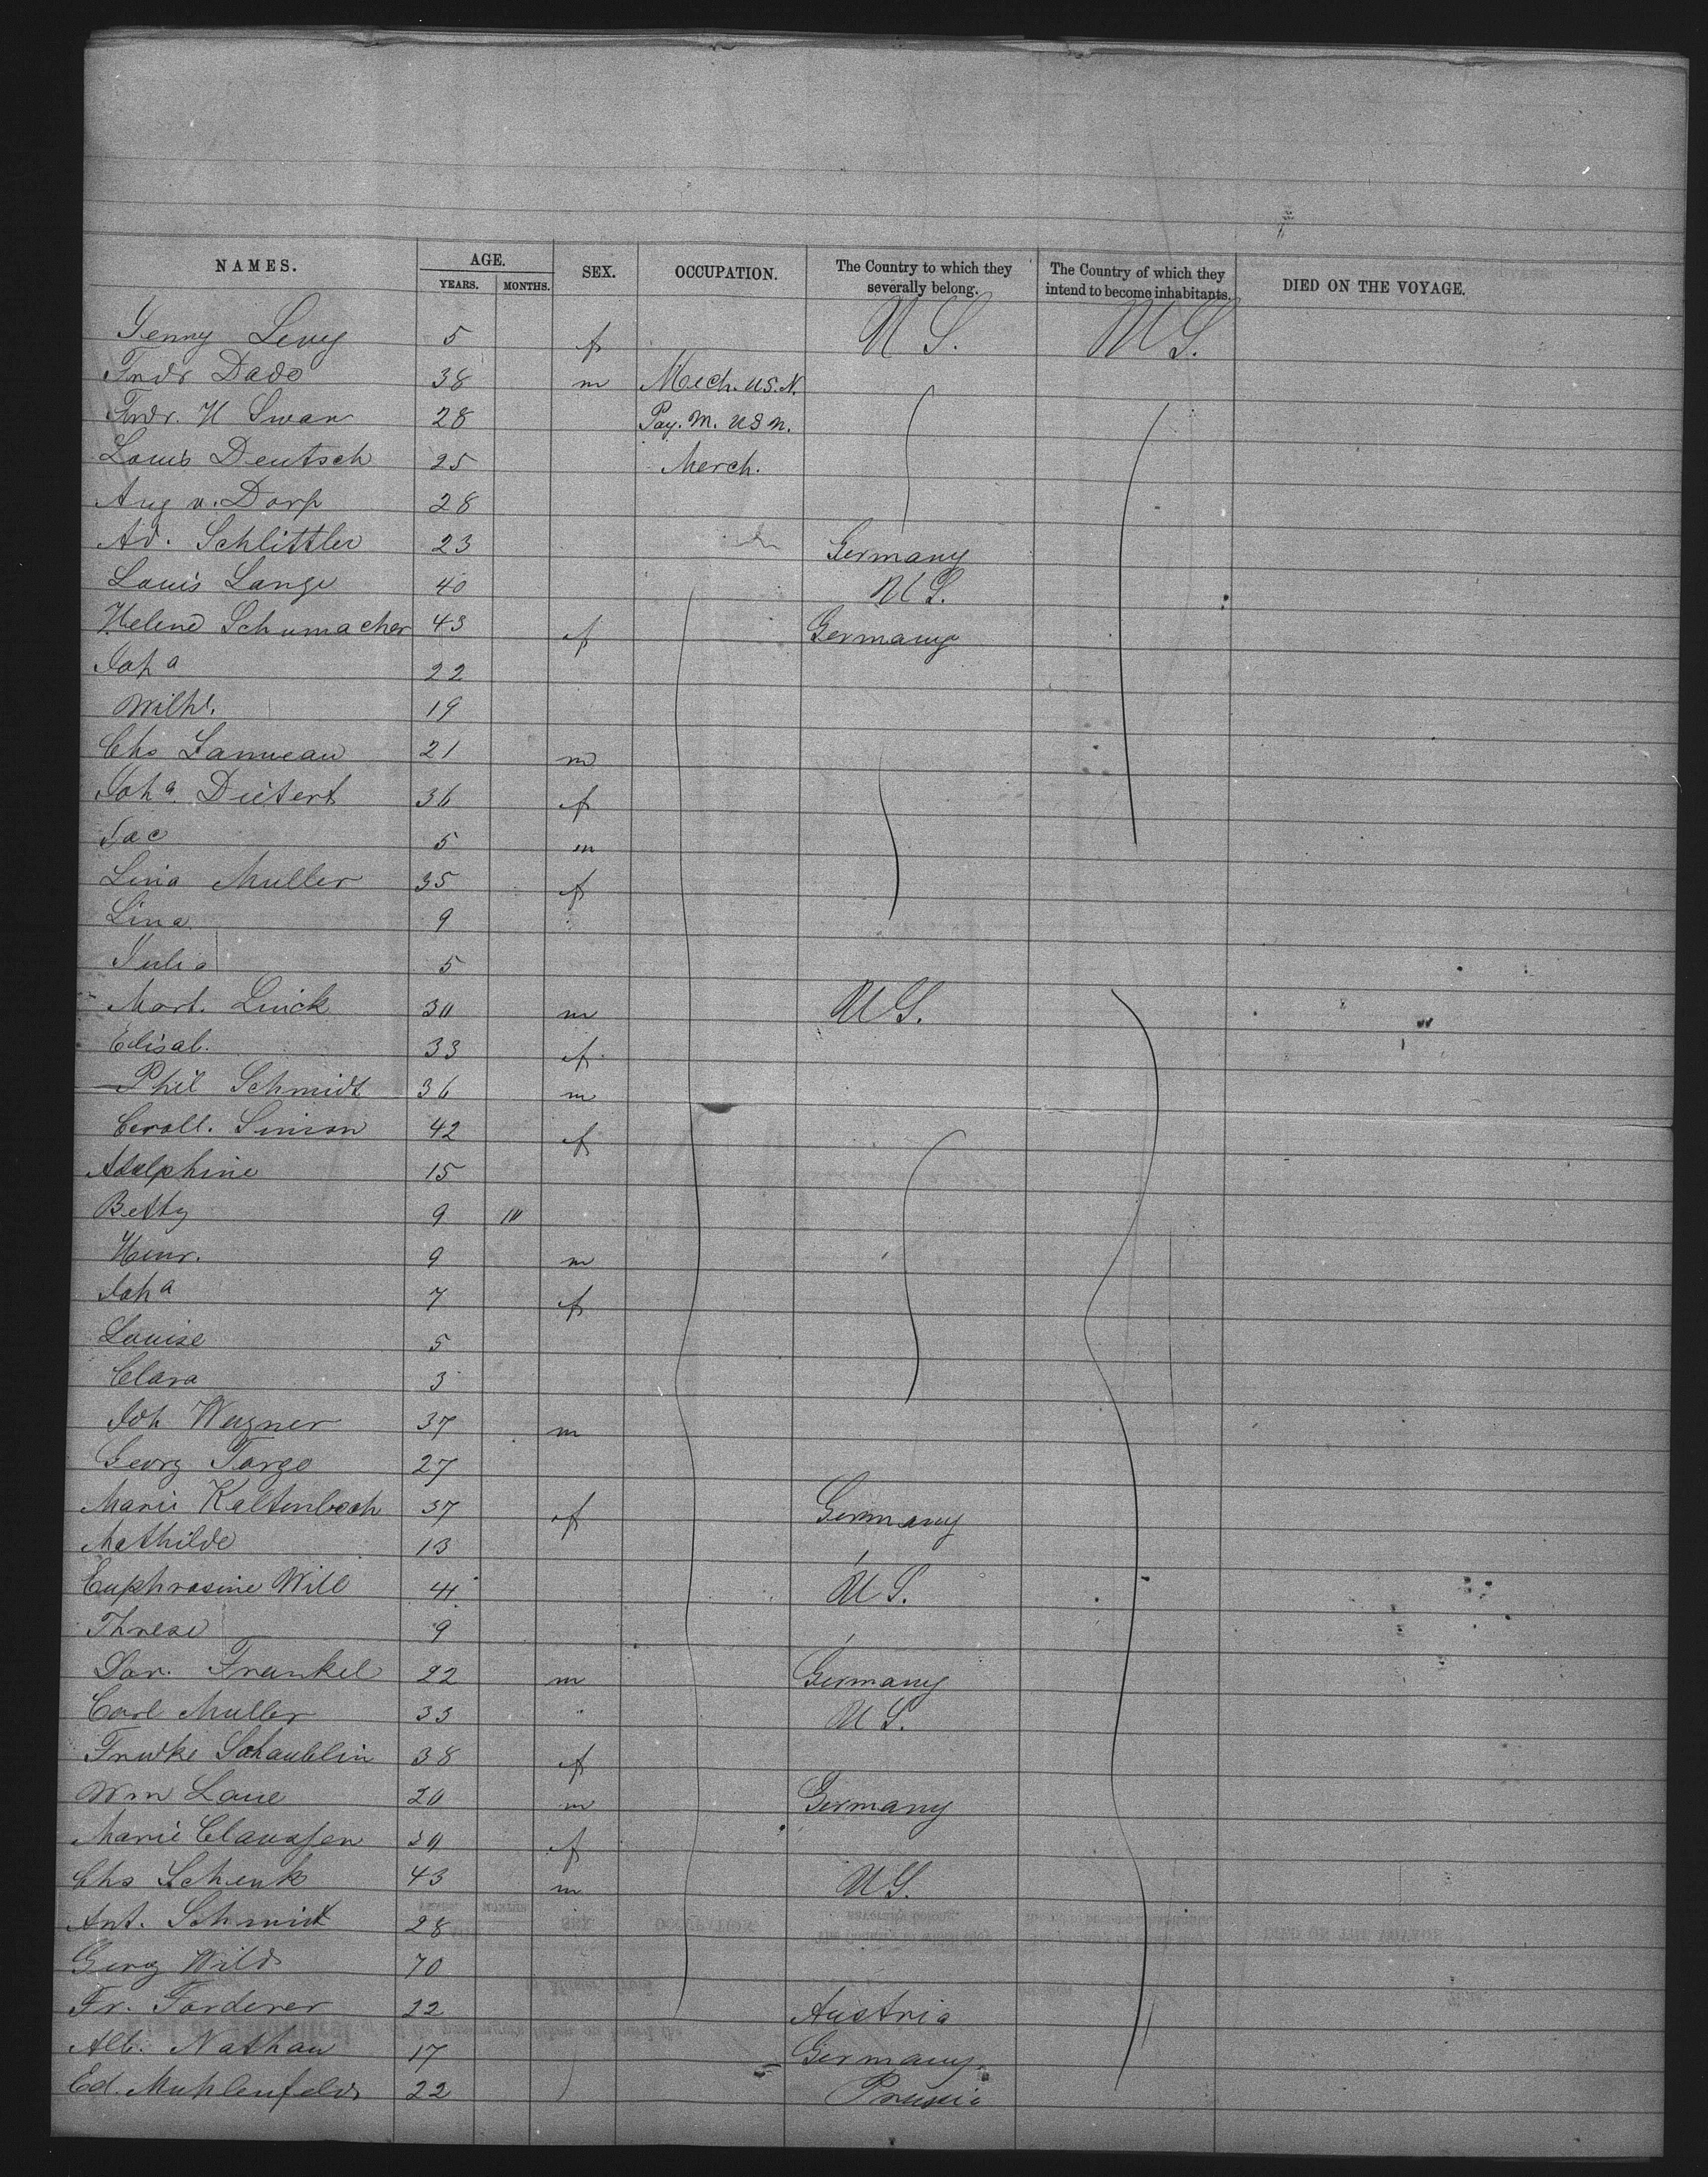 NAMES. AGE. SEX. OCCUPATION. The Country to which they severally belong. The Country of which they intend to become inhabitants. DIED ON THE VOYAGE.
YEARS. MONTHS.
Jenny Levy 5 f U S. U S.
Fredr Dado 38 m Mech. U.S.N.
Fredr. H Swan 28 Pay. M. U S N.
Louis Deutsch 25 Merch.
Aug v. Dorp 28
Ad. Schlittler 23 Germany
Louis Lange 40 U S.
Helene Schumacher 43 f Germany
Joha 22
Wilhe. 19
Chs Lanneau 21 m
Joha Dietert 36 f
Jac 5 m
Lina Muller 35 f
Lina 9
Julia 5
Mart. Linck 30 m U S.
Elisab. 33 f
Phil Schmidt 36 m
Caroll. Simon 42 f
Adelphine 15
Betty 9 10
Heinr. 9 m
Joha 7 f
Louise 5
Clara 3
Joh Wagner 37 m
Georg Targo 27
Marie Kaltenbach 37 f Germany
Mathilde 13
Euphrasine Will 41 U S.
Threse 9
Frankel 22 m Germany
Carl Muller 33 U S.
Schaublin 38 f
Wm Laue 20 m Germany
Marie Claussen 30 f
Chs Schenk 43 m U S.
Ant. Schmidt 28
Georg Wild 70
Fr. Forderer 22 Austria
Alb. Nathan 17 Germany
Ed. Muhlenfeld 22 Prussia